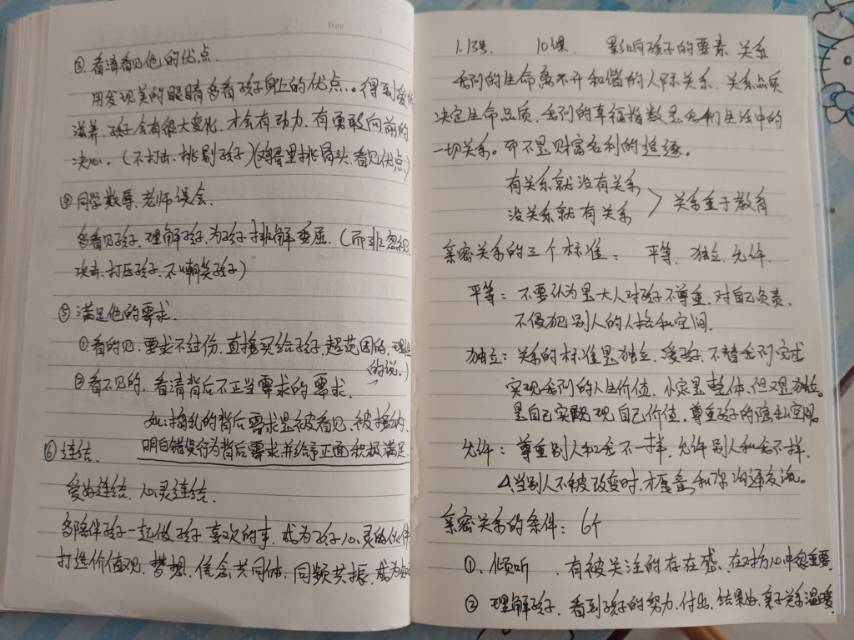 Date
③ 看清看见他的优点.
用发现美的眼睛多看孩子身上的优点。得到爱的
滋养.孩子会有很大变化,才会有动力,有勇敢向前的
决心。(不打击、挑剔孩子)(鸡蛋里挑骨头.看见优点)
④ 同学欺辱、老师误会.
多看见孩子,理解孩子,为孩子排解委屈.(而非忽视
攻击.打压孩子,不嘲笑孩子)
⑤ 满足他的要求.
①看的见.要求不过份,直接买给孩子,超范围的,理
的说。)
②看不见的.看清背后不正当要求的需求.
如:捣乱的背后需求是被看见,被接纳.
明白错误行为背后需求并给予正面积极满足.
⑥ 连结.
爱的连结.心灵连结.
多陪伴孩子一起做孩子喜欢的事.成为孩子心灵的伙伴
打造价值观.梦想.信念共同体.同频共振.成为
1.13号. 10课. 影响孩子的要素 关系
我们的生命离不开和谐的人际关系.关系品质
决定生命品质.我们的幸福指数是我们生活中的
一切关系。而不是财富名利的追逐。
有关系就没有关系
没关系就有关系 > 关系重于教育
亲密关系的三个标准: 平等. 独立. 允许.
平等: 不要认为是大人对孩子不尊重.对自己负责.
不侵犯别人的人格和空间.
独立: 关系的标准是独立.爱孩子.不替我们完成
实现我们的人生价值.小家是整体.但又是独立。
是自己实现自己价值.尊重孩子的隐私空间。
允许: 尊重别人和我不一样.允许别人和我不一样.
△当别人不被改变时.才愿意和你沟通交流。
亲密关系的条件: 6个
①.倾听. 有被关注的存在感.在对方心中很重要.
② 理解孩子.看到孩子的努力.付出.结果好.亲子关系温暖.